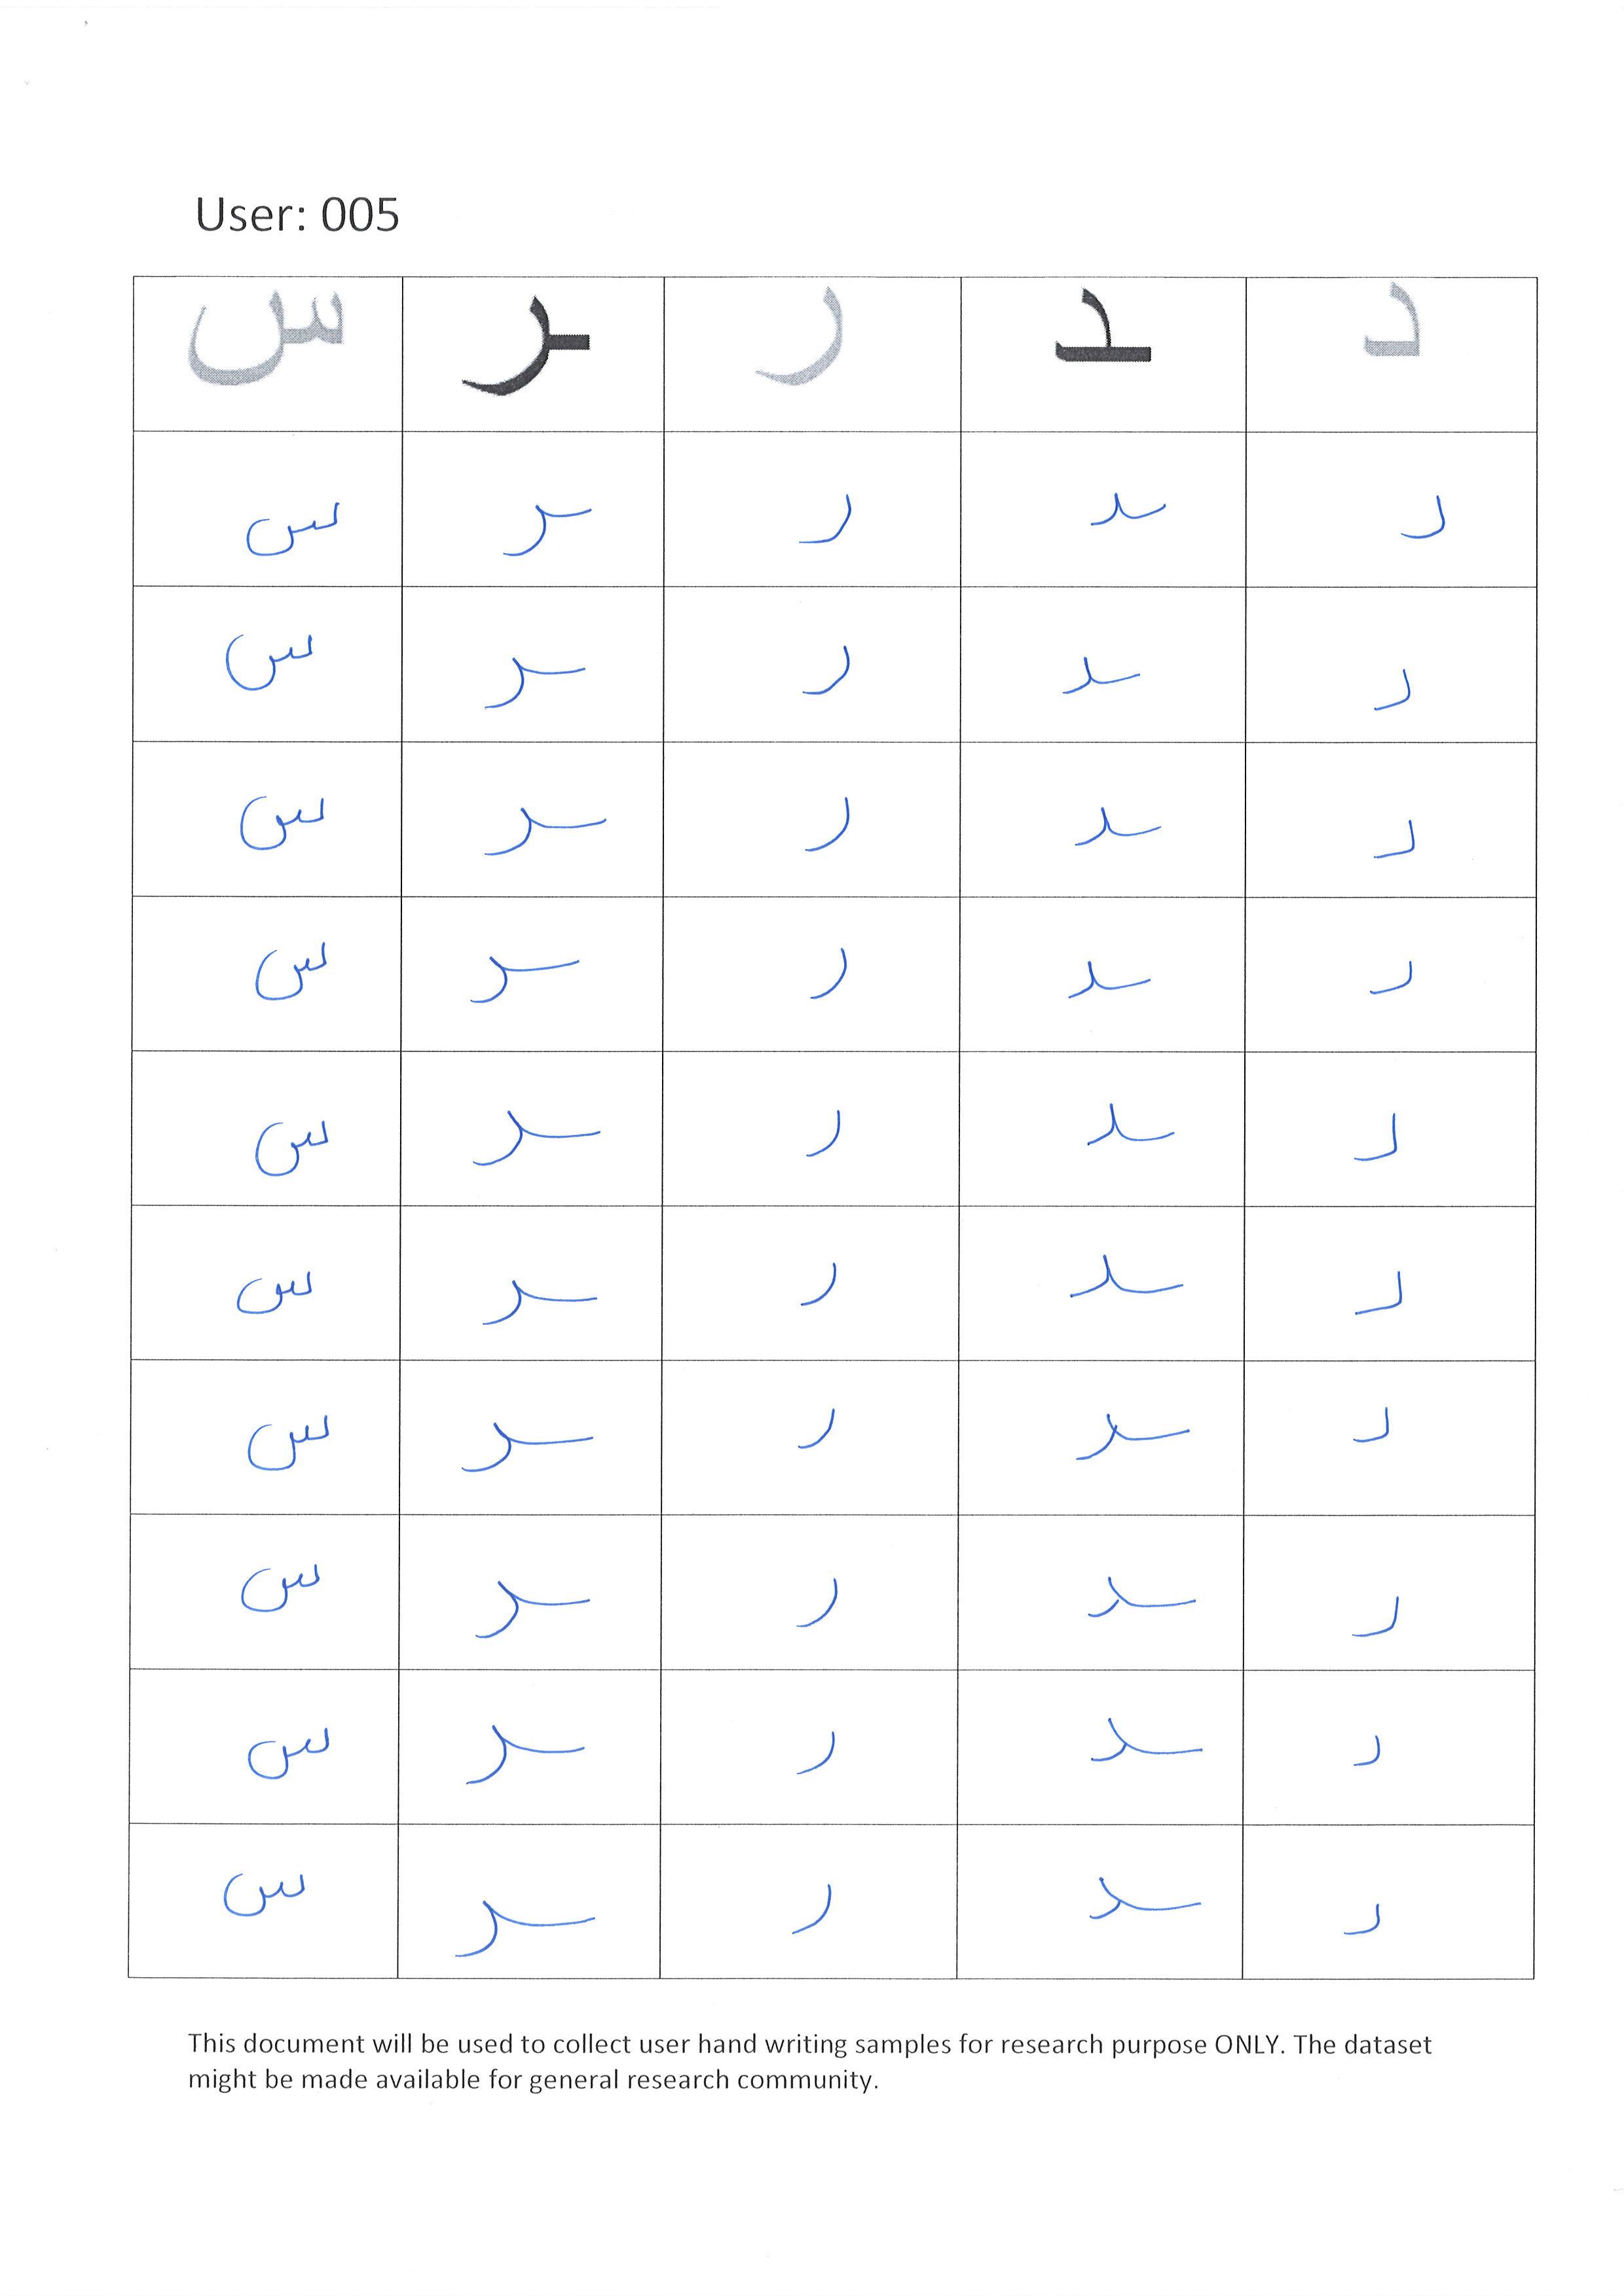 User: 005
د ـد ر ـر س
د ـد ر ـر س
د ـد ر ـر س
د ـد ر ـر س
د ـد ر ـر س
د ـد ر ـر س
د ـد ر ـر س
د ـد ر ـر س
د ـد ر ـر س
د ـد ر ـر س
د ـد ر ـر س
This document will be used to collect user hand writing samples for research purpose ONLY. The dataset
might be made available for general research community.